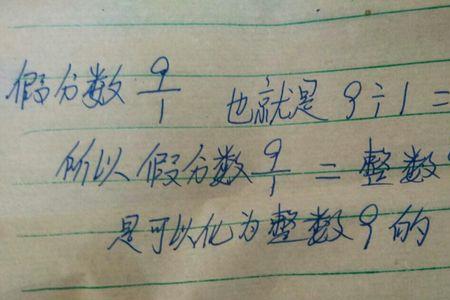 假分数 9/1 也就是 9÷1=
所以假分数 9/1 = 整数9
是可以化为整数9的